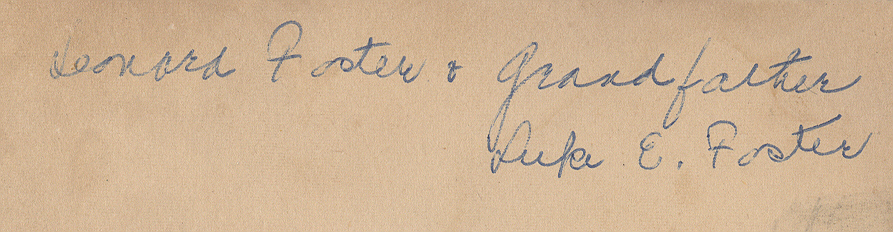 Leonard Foster & Grandfather
Luke E. Foster